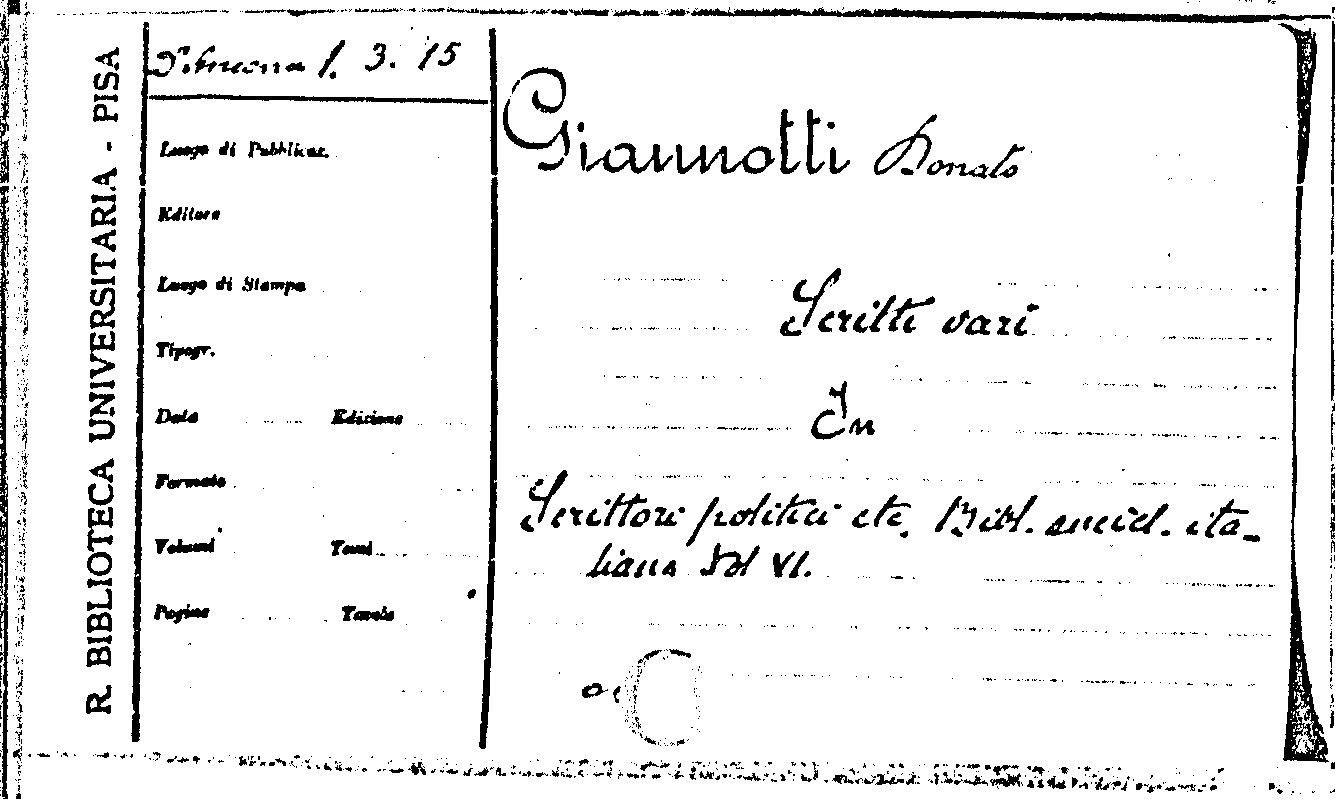 R. BIBLIOTECA UNIVERSITARIA - PISA
1. 3. 15
Luogo di Pubblicaz.
Editore
Luogo di Stampa
Tipogr.
Data Edizione
Formato
Volumi Tomi
Pagine Tavole
Giannotti Donato
Scritti vari
In
Scrittori politici etc. Bibl. encicl. ita-
liana Vol VI.